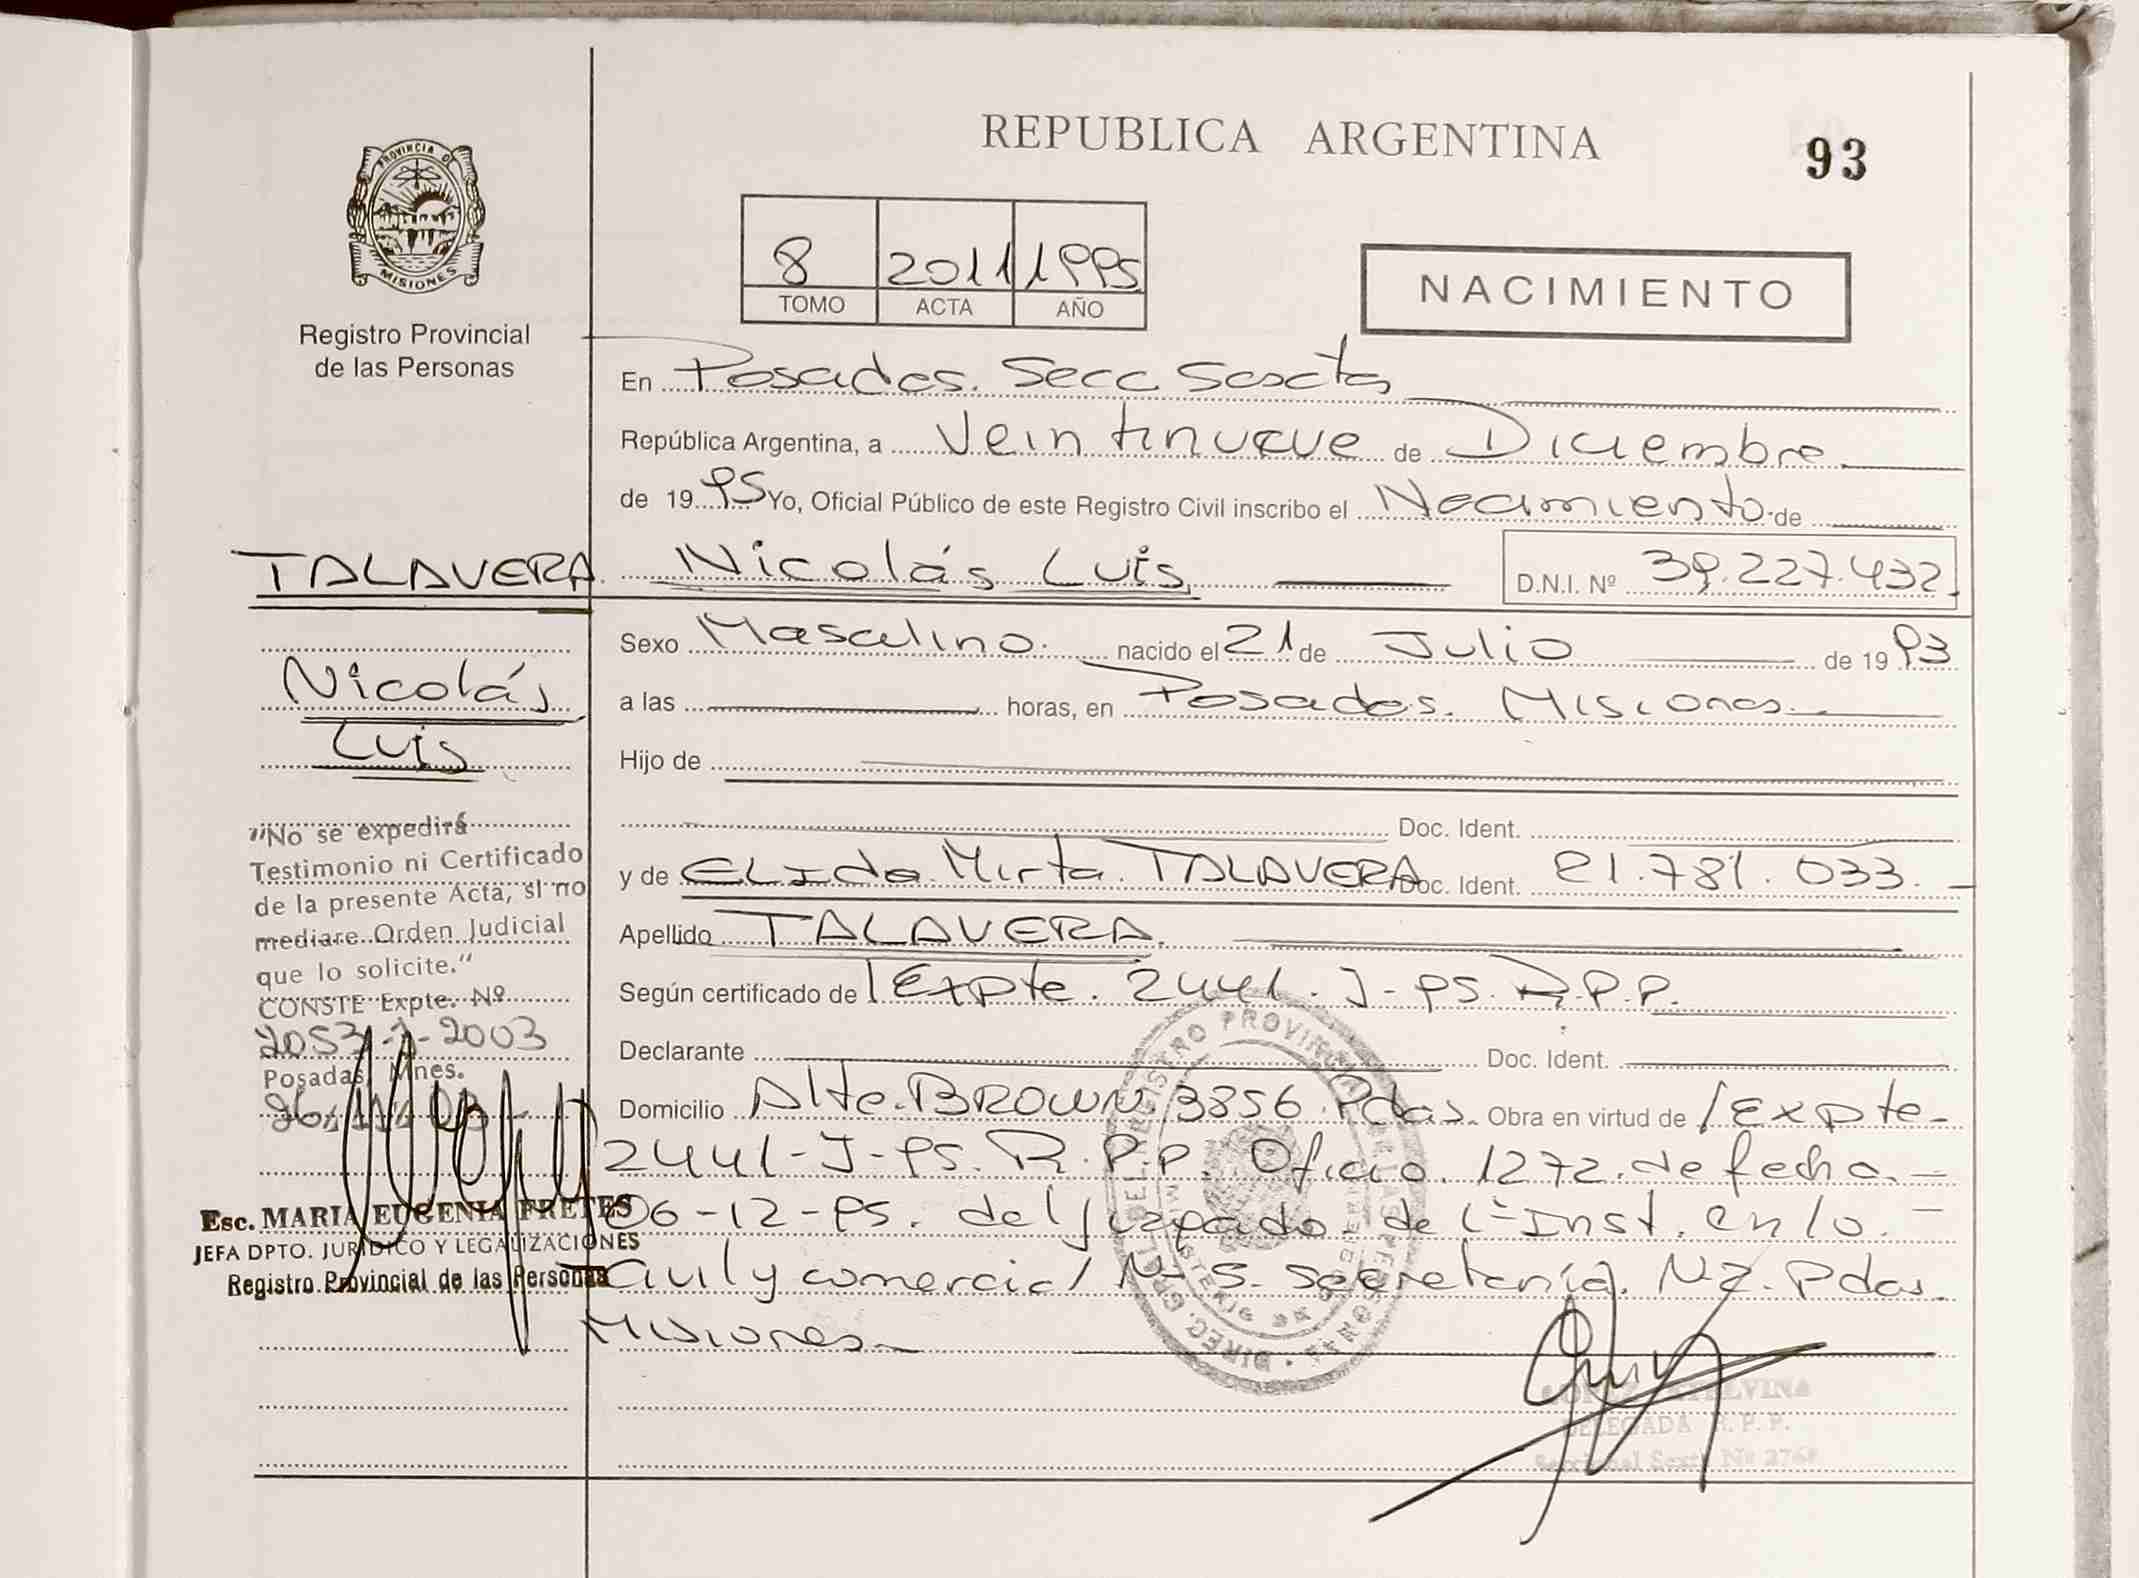 REPUBLICA ARGENTINA
93
PROVINCIA DE
MISIONES
Registro Provincial
de las Personas
8 2011 1995
TOMO ACTA AÑO
NACIMIENTO
En Posadas. Secc Sexta
República Argentina, a Veintinueve de Diciembre
de 1995 Yo, Oficial Público de este Registro Civil inscribo el Nacimiento de
TALAVERA Nicolás Luis D.N.I. Nº 39.227.432
Sexo Masculino. nacido el 21 de Julio de 1993
Nicolás
Luis
a las horas, en Posadas. Misiones
Hijo de
Doc. Ident.
y de ELIda Mirta TALAVERA Doc. Ident. 21.781.033.
Apellido TALAVERA
Según certificado de Expte. 2441-J-95. R.P.P.
Declarante Doc. Ident.
Domicilio Alte. BROWN 3856 Pdas. Obra en virtud de Expte-
2441-J-95. R.P.P. Oficio 1272. de fecha
06-12-95. del Juzgado de 1ª Inst. en lo
Civil y comercial N-5. Secretaría N2. Pdas.
Misiones
"No se expedirá
Testimonio ni Certificado
de la presente Acta, si no
mediare Orden Judicial
que lo solicite."
CONSTE Expte. Nº
2053-J-2003
Posadas, Mnes.
26/11/03
Esc. MARIA EUGENIA FRETES
JEFA DPTO. JURIDICO Y LEGALIZACIONES
Registro Provincial de las Personas
DIREC. GRAL. DEL REGISTRO PROVINCIAL DE LAS PERSONAS
MINISTERIO DE GOBIERNO
DELEGADA R.P.P.